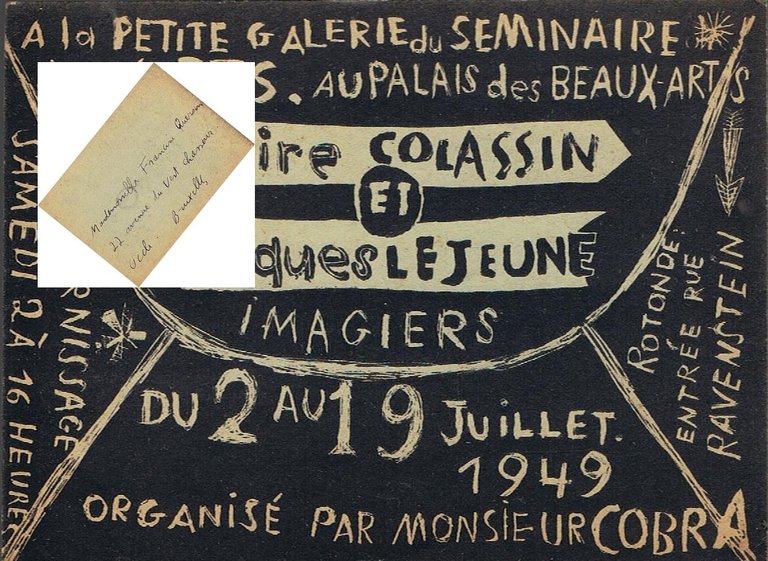 A la PETITE GALERIE du SEMINAIRE
S. AU PALAIS des BEAUX-ARTS
ire COLASSIN
ET
ques LEJEUNE
IMAGIERS
DU 2 AU 19 JUILLET.
1949
ORGANISÉ PAR MONSIEUR COBRA
SAMEDI 2 À 16 HEURES
RNISSAGE
ROTONDE:
ENTRÉE RUE
RAVENSTEIN
Mademoiselle Francine
22 avenue du Vert Chasseur
Uccle. Bruxelles